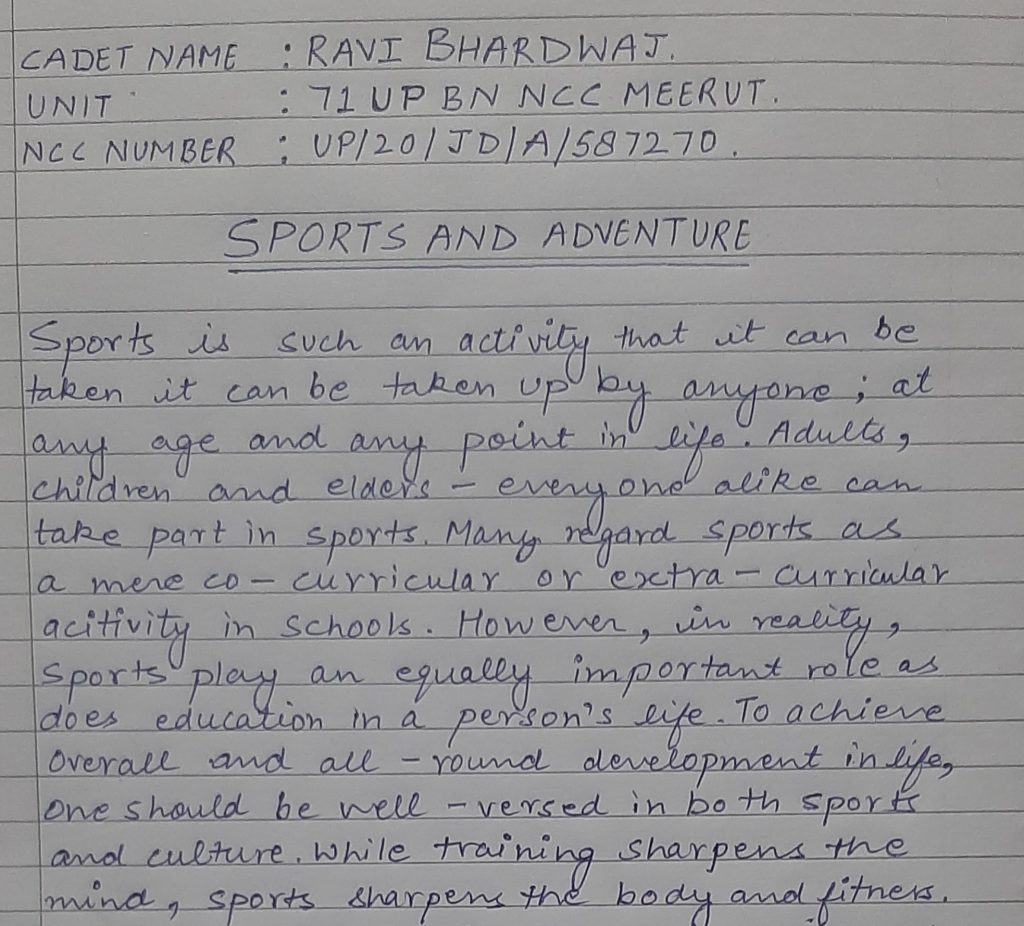 CADET NAME : RAVI BHARDWAJ.
UNIT : 71 UP BN NCC MEERUT.
NCC NUMBER : UP/20/JD/A/587270.
SPORTS AND ADVENTURE
Sports is such an activity that it can be
taken it can be taken up by anyone; at
any age and any point in life. Adults,
children and elders - everyone alike can
take part in sports. Many regard sports as
a mere co-curricular or extra-curricular
acitivity in schools. However, in reality,
sports play an equally important role as
does education in a person's life. To achieve
overall and all-round development in life,
one should be well-versed in both sports
and culture. While training sharpens the
mind, sports sharpens the body and fitness.